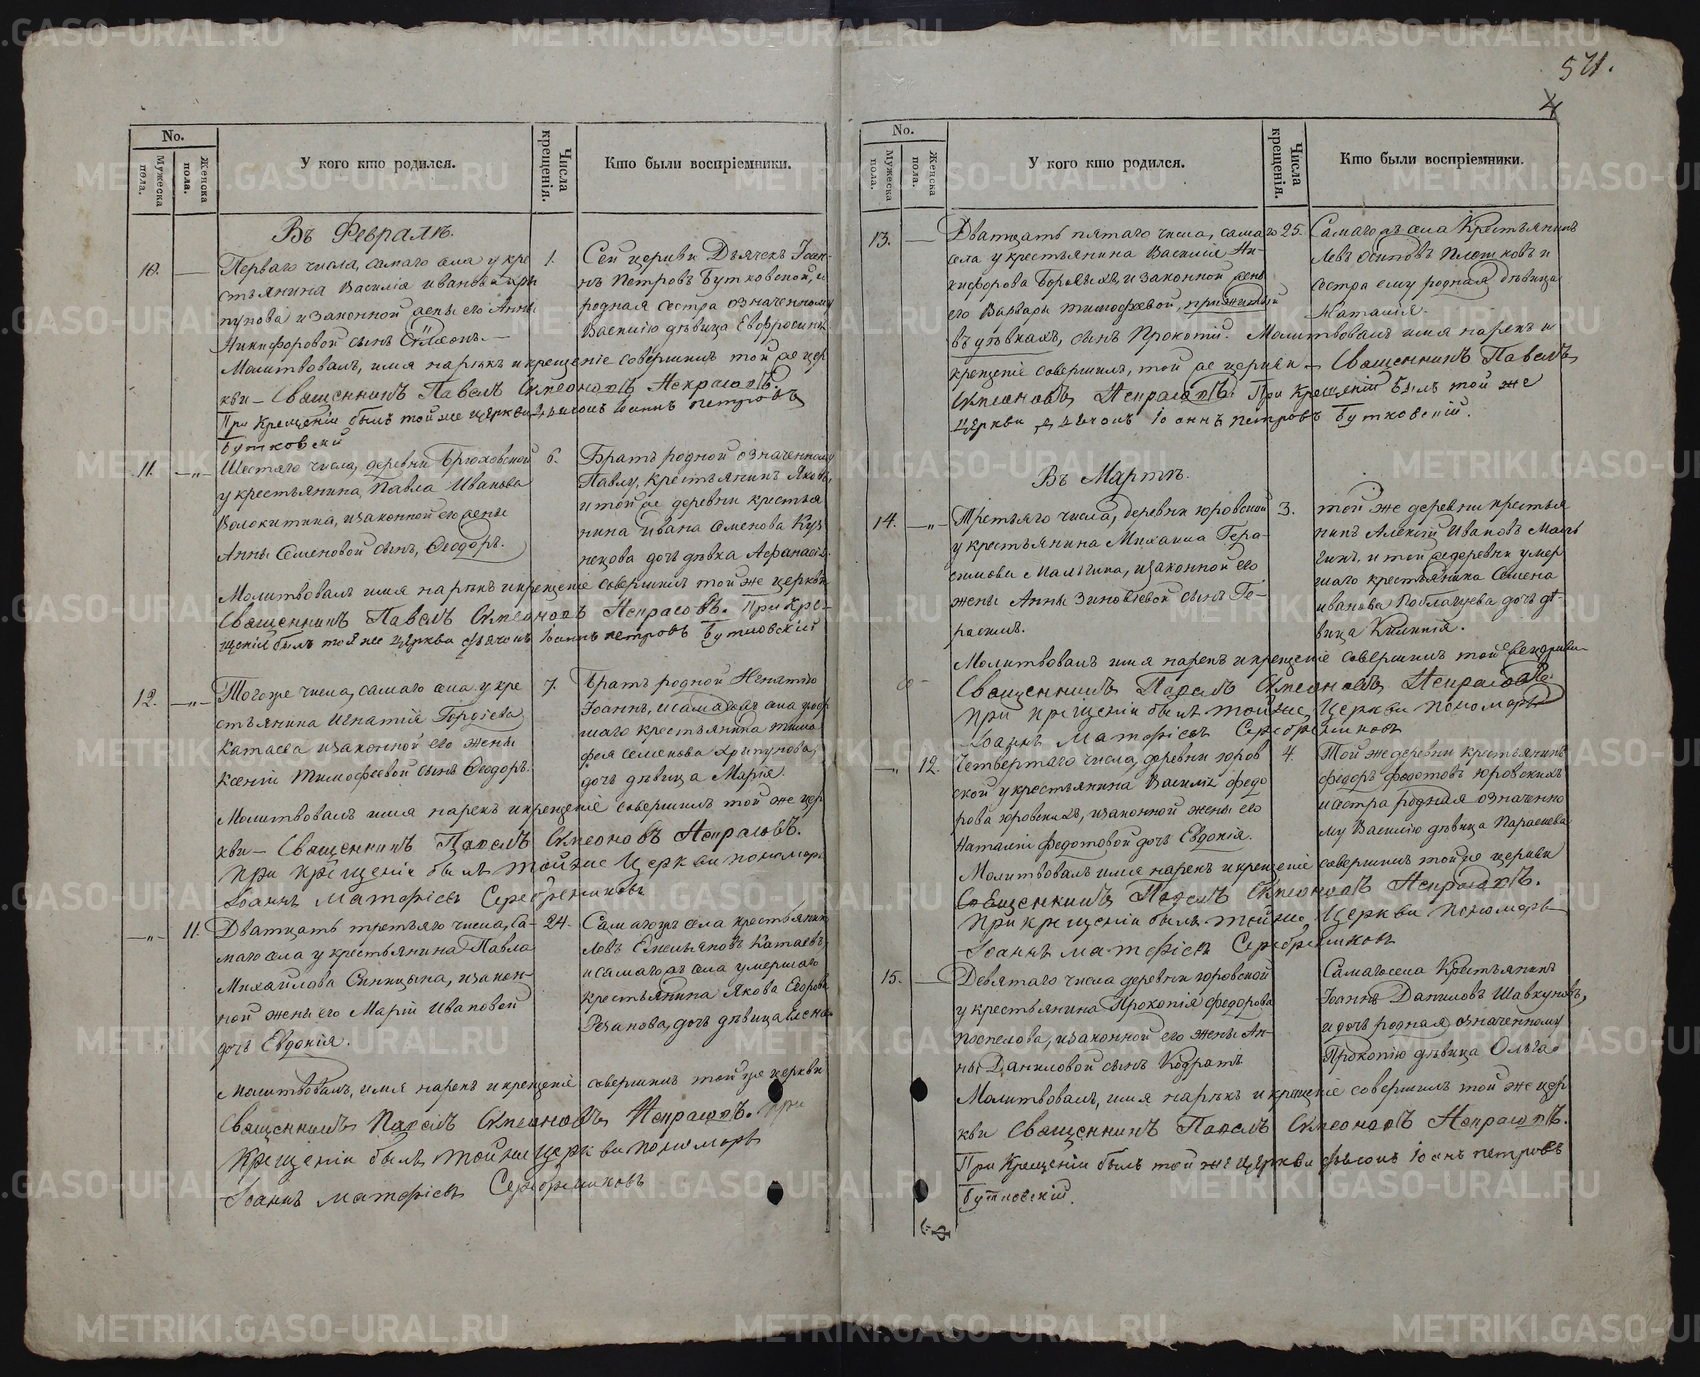 571.
4
No.
Мужеска пола.
Женска пола.
У кого кто родился.
Числа крещенія.
Кто были воспріемники.
Въ Февралѣ.
10. — Перваго числа, самаго села у кре 1. Сей церкви Дьячекъ Іоан-
стьянина Василія Иванова Хри нъ Петровъ Бутковской, и
пунова и законной жены его Анны родная сестра означенному
Никифоровой сынъ Симеонъ. — Василію дѣвица Евфросинія
Молитвовалъ, имя нарѣкъ и крещеніе совершилъ той же цер
кви — Священникъ Павелъ Симеоновъ Некрасовъ.
При Крещеніи былъ тойже церкви дьячокъ Іоаннъ Петровъ
Бутковскій
11. —„— Шестаго числа, деревни Брюховской 6. Братъ родной означенному
у крестьянина Павла Иванова Павлу, крестьянинъ Яковъ,
Волокитина, и законной его жены и той же деревни крестья
Анны Семеновой сынъ, Ѳеодоръ. нина Ивана Семенова Куз
нецова дочь дѣвка Афанасія
Молитвовалъ имя нарѣкъ и крещеніе совершилъ той же церкви
Священникъ Павелъ Симеоновъ Некрасовъ. При Кре-
щеніи былъ тойже церкви дьячокъ Іоаннъ Петровъ Бутковскій
12. —„— Тогоже числа, самаго села у кре 7. Братъ родной Игнатію
стьянина Игнатія Гордѣева Іоаннъ, и самагоже села умер
Катаева и законной его жены шаго крестьянина Тимо
Ксеніи Тимофеевой сынъ Ѳеодоръ. фея Семенова Хрипунова,
дочь дѣвица Марія.
Молитвовалъ имя нарекъ и крещеніе совершилъ той же цер
кви — Священникъ Павелъ Симеоновъ Некрасовъ.
При крещеніи былъ тойже Церкви пономарь
Іоаннъ Матфіевъ Серебрениковъ
—„— 11. Дватцать третьяго числа, са- 24. Самагожъ села крестьянинъ
маго села у крестьянина Павла Левъ Емельяновъ Катаевъ,
Михайлова Синицына, и закон- и самагожъ села умершаго
ной жены его Маріи Ивановой крестьянина Якова Егорова
дочь Евдокія. Резанова, дочь дѣвица Елена.
Молитвовалъ, имя нарекъ и крещеніе совершилъ той же церкви
Священникъ Павелъ Симеоновъ Некрасовъ. При
Крещеніи былъ тойже церкви пономарь
Іоаннъ Матфіевъ Серебрениковъ
No.
Мужеска пола.
Женска пола.
У кого кто родился.
Числа крещенія.
Кто были воспріемники.
13. — Дватцать пятаго числа, самаго 25. Самагожъ села Крестьянинъ
села у крестьянина Василія Ни- Левъ Осиповъ Плотковъ и
кифорова Боровыхъ, и законной жены сестра ему родная дѣвица
его Варвары Тимофеевой, Наталія.
сынъ Прокопій. Молитвовалъ имя нарекъ и
крещеніе совершилъ, той же церкви — Священникъ Павелъ
Симеоновъ Некрасовъ. При Крещеніи былъ той же
церкви дьячокъ Іоаннъ Петровъ Бутковскій.
Въ Мартѣ.
14. —„— Третьяго числа, деревни Юровской 3. той же деревни крестья
у крестьянина Михаила Гера- нинъ Алексій Ивановъ Маль
симова Мальгина, и законной его гинъ, и той же деревни умер
жены Анны Зиновіевой сынъ Ге- шаго крестьянина Семена
расимъ. Иванова дочь дѣ
вица
Молитвовалъ имя нарекъ и крещеніе совершилъ той же церкви
Священникъ Павелъ Симеоновъ Некрасовъ.
При крещеніи былъ тойже, Церкви пономарь
Іоаннъ Матфіевъ Серебрениковъ
—„— 12. Четвертаго числа, деревни Юров 4. Той же деревни крестьянинъ
ской у крестьянина Василья Федо Федоръ Федотовъ Юровскихъ
рова Юровскихъ, и законной жены его и сестра родная означенно
Наталіи Федотовой дочь Евдокія. му Василію дѣвица Параскева
Молитвовалъ имя нарекъ и крещеніе совершилъ той же церкви
Священникъ Павелъ Симеоновъ Некрасовъ.
При крещеніи былъ тойже, Церкви пономарь
Іоаннъ Матфіевъ Серебрениковъ
15. — Девятаго числа деревни Юровской Самагосела Крестьянинъ
у крестьянина Прокопія Федорова Іоаннъ Даниловъ Шавкуновъ,
Поспелова, и законной его жены Ан- и дочь родная означенному
ны Даниловой сынъ Кодратъ Прокопію дѣвица Ольга.
Молитвовалъ, имя нарѣкъ и крещеніе совершилъ той же цер
кви Священникъ Павелъ Симеоновъ Некрасовъ.
При Крещеніи былъ той же церкви дьячокъ Іоаннъ Петровъ
Бутковскій.
METRIKI.GASO-URAL.RU